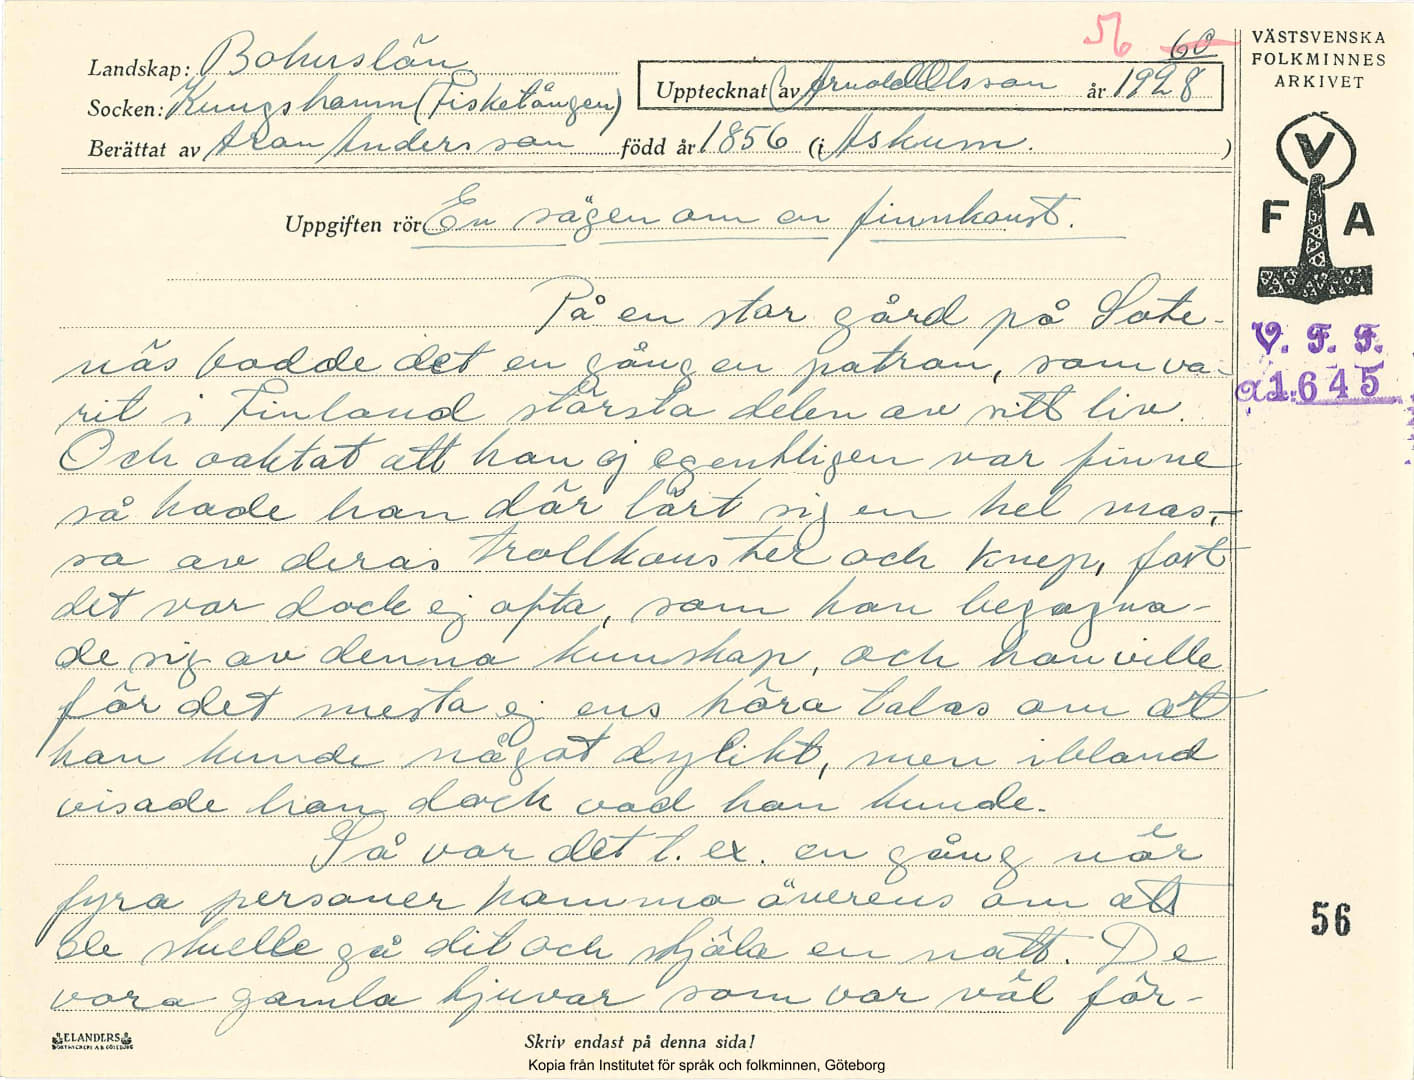 56 60
Landskap: Bohuslän
Upptecknat av Arnold Olsson år 1928
Socken: Kungshamn (Fisketången)
Berättat av Aron Andersson född år 1856 (i Askum. )
Uppgiften rör En sägen om en finnkonst.
På en stor gård på Sote-
näs bodde det en gång en patron, som va-
rit i Finland största delen av sitt liv.
Och oaktat att han ej egentligen var finne
så hade han där lärt sig en hel mas-
sa av deras trollkonster och knep, fast
det var dock ej ofta, som han begagna-
de sig av denna kunskap, och han ville
för det mesta ej ens höra talas om att
han kunde något dylikt, men ibland
visade han dock vad han kunde.
Så var det t. ex. en gång när
fyra personer komma överens om att
de skulle gå dit och stjäla en natt. De
vora gamla tjuvar som var väl för-
ELANDERS
Skriv endast på denna sida!
Kopia från Institutet för språk och folkminnen, Göteborg
VÄSTSVENSKA
FOLKMINNES
ARKIVET
V
F A
V. F. F.
a1645
56